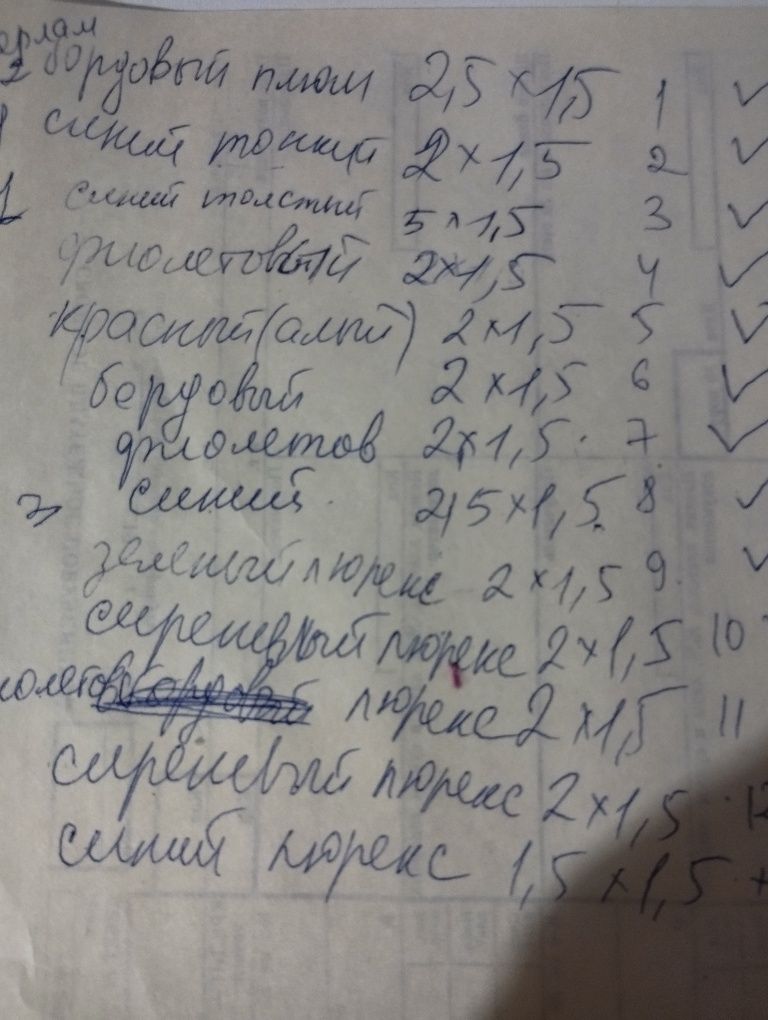 2 бордовый плюш 2,5 × 1,5 1 ✓
синий тонкий 2 × 1,5 2 ✓
1 синий толстый 5 × 1,5 3 ✓
фиолетовый 2 × 1,5 4 ✓
красный (алый) 2 × 1,5 5 ✓
бордовый 2 × 1,5 6 ✓
фиолетов 2 × 1,5. 7 ✓
синий. 2,5 × 1,5. 8 ✓
зеленый люрекс 2 × 1,5 9. ✓
сиреневый люрекс 2 × 1,5 10
люрекс 2 × 1,5 11
сиреневый люрекс 2 × 1,5 12
синий люрекс 1,5 × 1,5